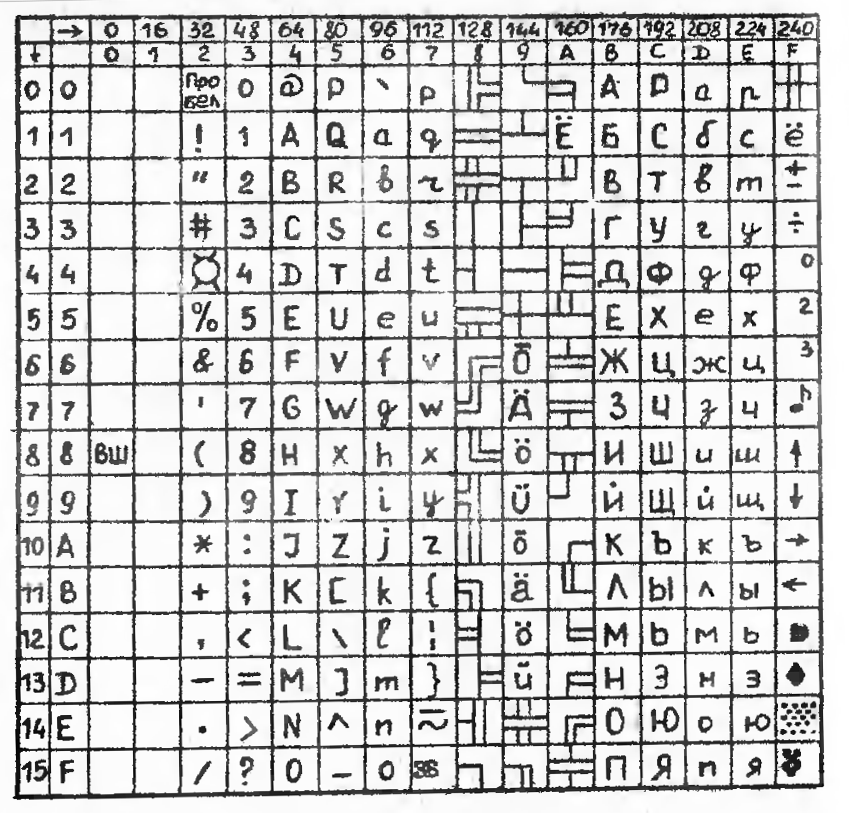 → 0 16 32 48 64 80 96 112 128 144 160 176 192 208 224 240
↓ 0 1 2 3 4 5 6 7 8 9 A B C D E F
0 0 Пробел 0 @ P ` p А Р а р
1 1 ! 1 A Q a q Ё Б С б с ё
2 2 " 2 B R b r В Т в т ±
3 3 # 3 C S c s Г У г у ÷
4 4 ¤ 4 D T d t Д Ф д ф °
5 5 % 5 E U e u Е Х е х ²
6 6 & 6 F V f v Õ Ж Ц ж ц ³
7 7 ' 7 G W g w Ä З Ч з ч ♪
8 8 ВШ ( 8 H X h x Ö И Ш и ш ↑
9 9 ) 9 I Y i y Ü Й Щ й щ ↓
10 A * : J Z j z õ К Ъ к ъ →
11 B + ; K [ k { ä Л Ы л ы ←
12 C , < L \ l ¦ ö М Ь м ь
13 D – = M ] m } ü Н Э н э ♦
14 E . > N ^ n О Ю о ю
15 F / ? O _ o П Я п я